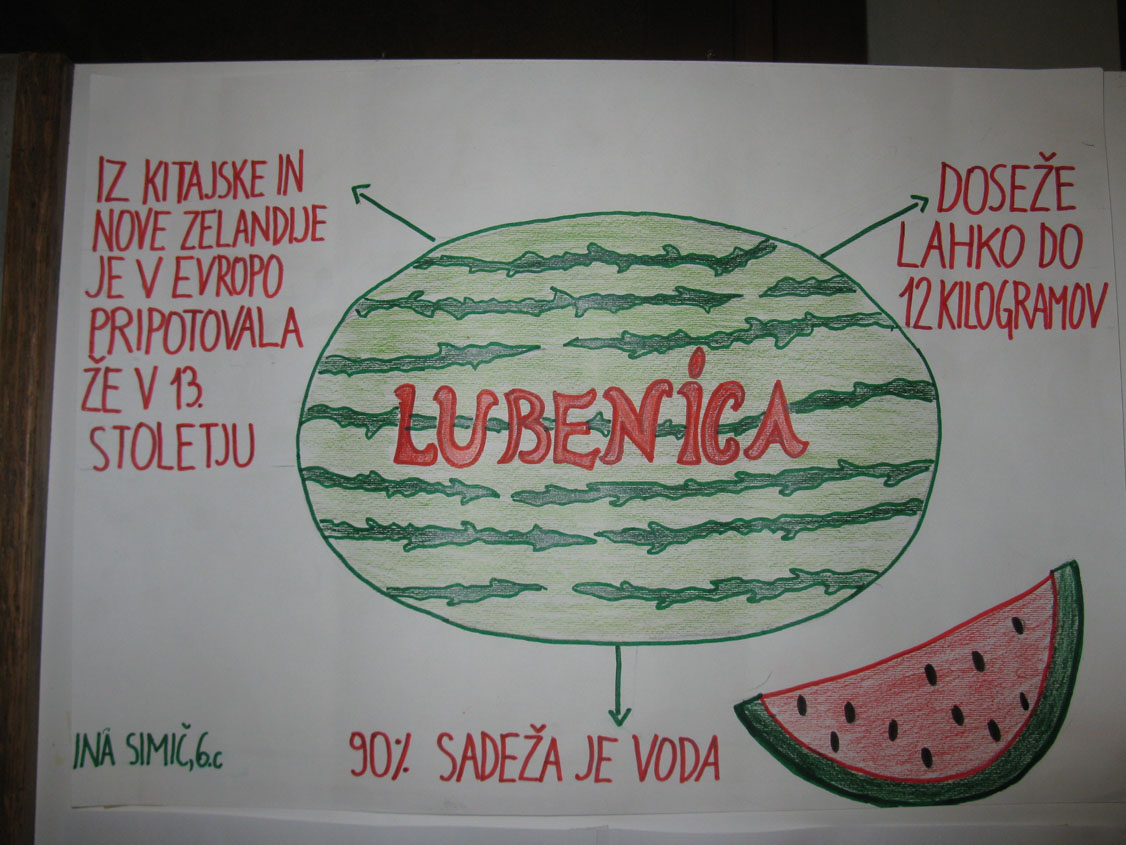 IZ KITAJSKE IN
NOVE ZELANDIJE
JE V EVROPO
PRIPOTOVALA
ŽE V 13.
STOLETJU
DOSEŽE
LAHKO DO
12 KILOGRAMOV
LUBENICA
90% SADEŽA JE VODA
INA SIMIČ, 6.c